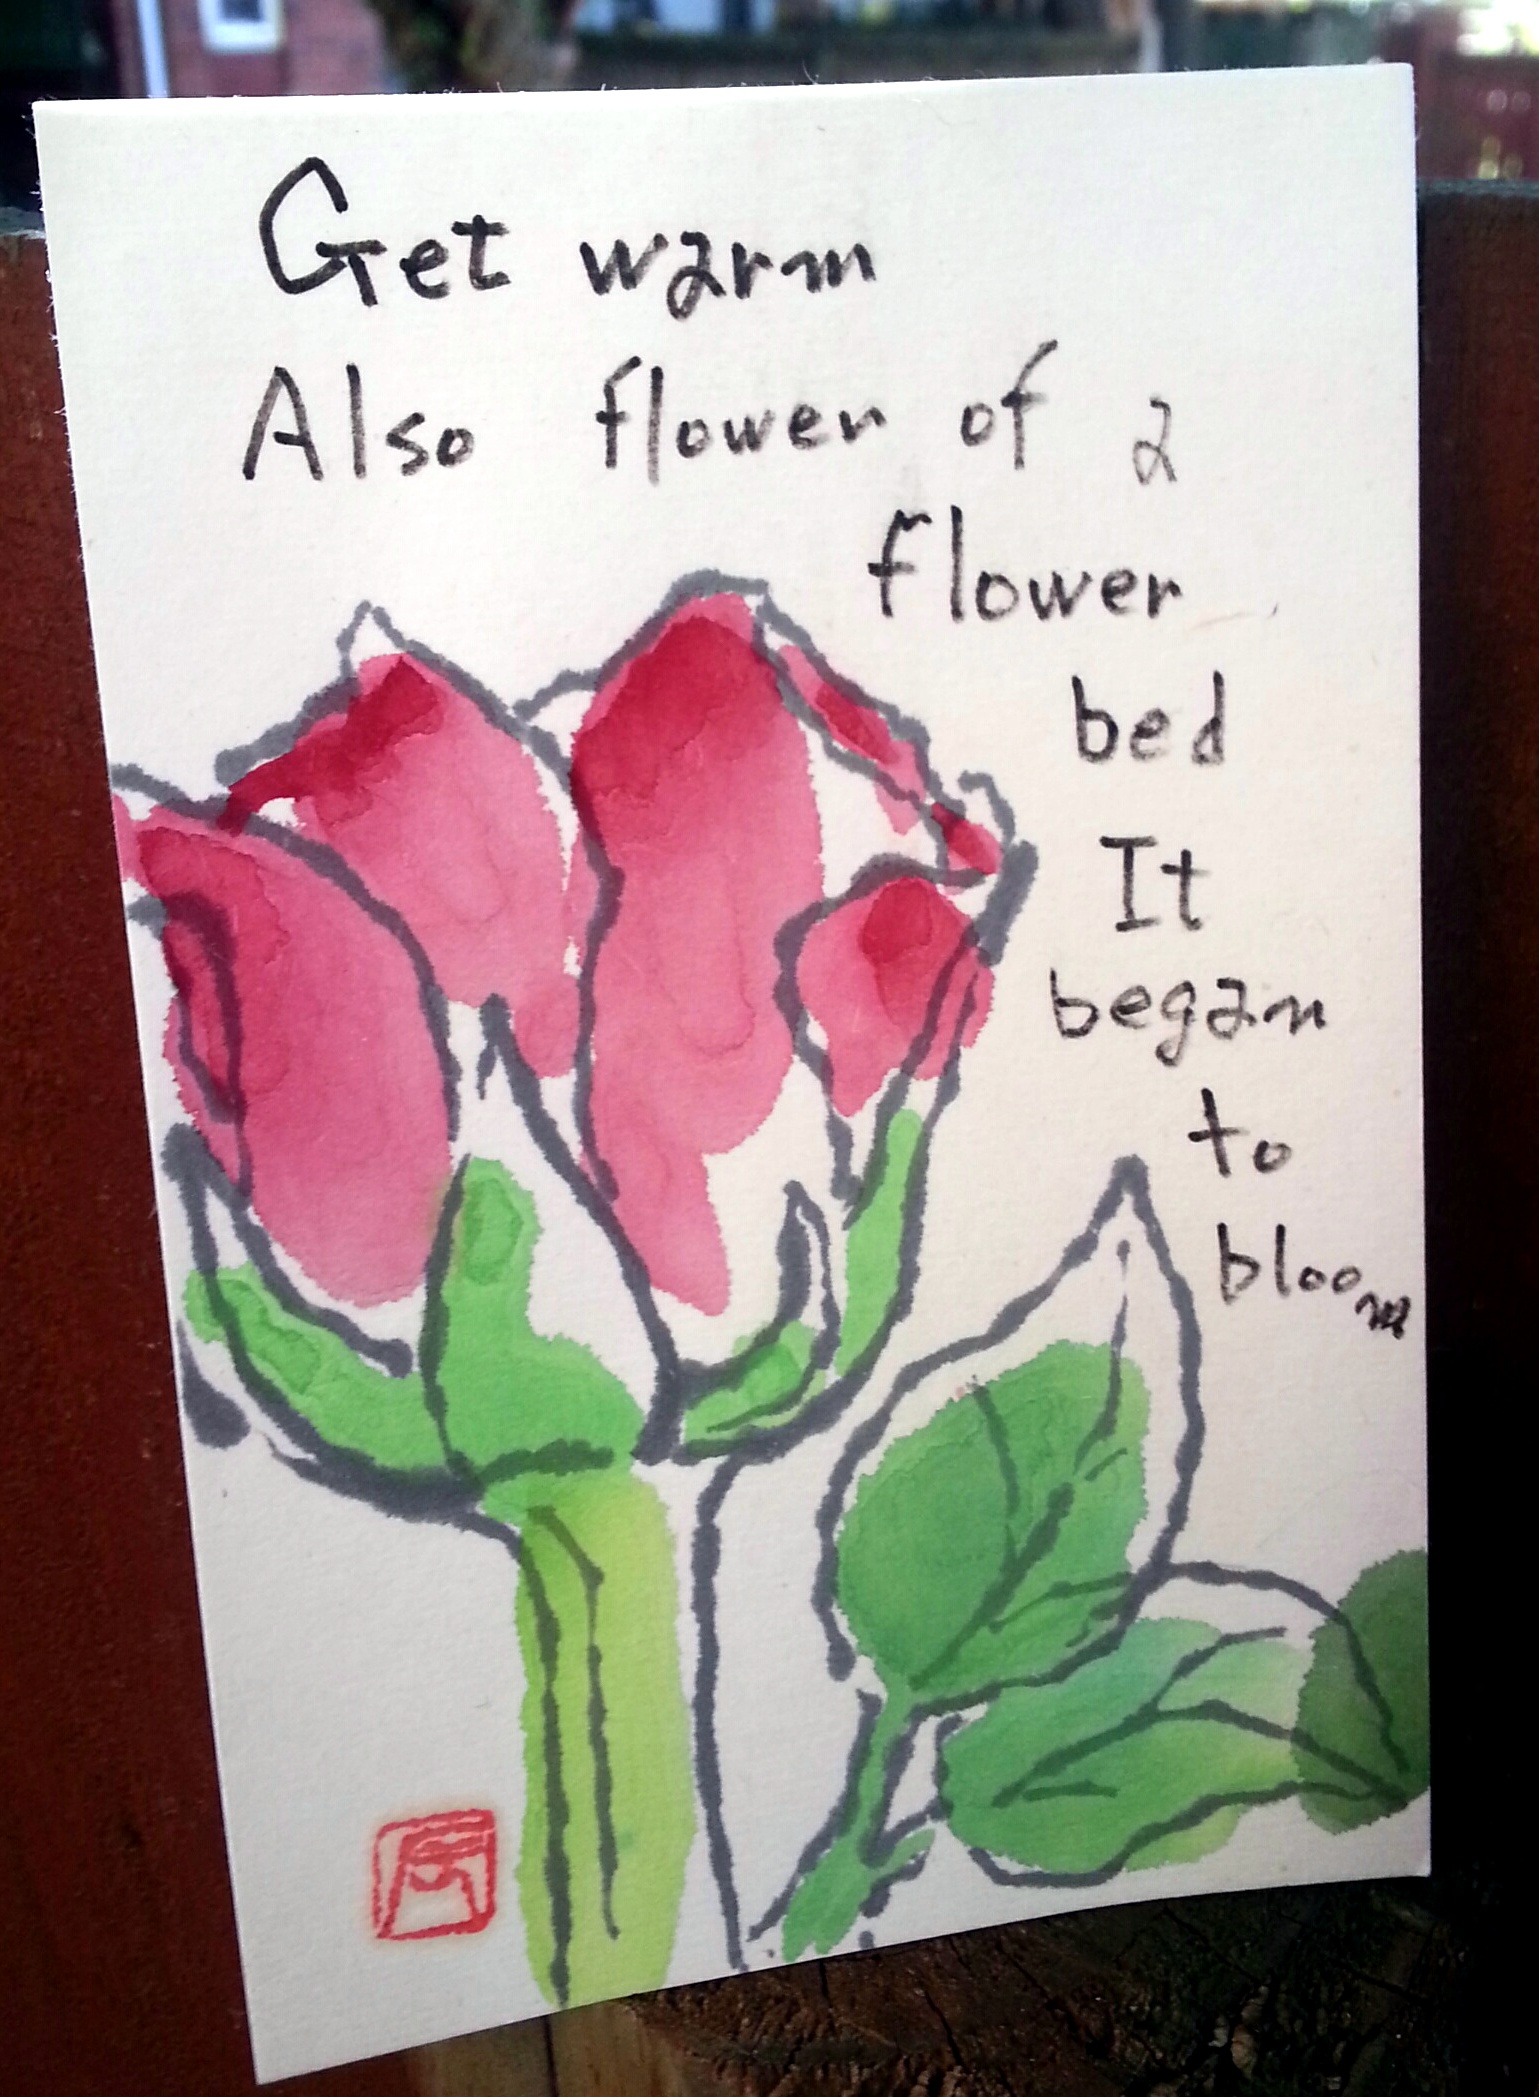 Get warm
Also flower of a
flower
bed
It
began
to
bloom